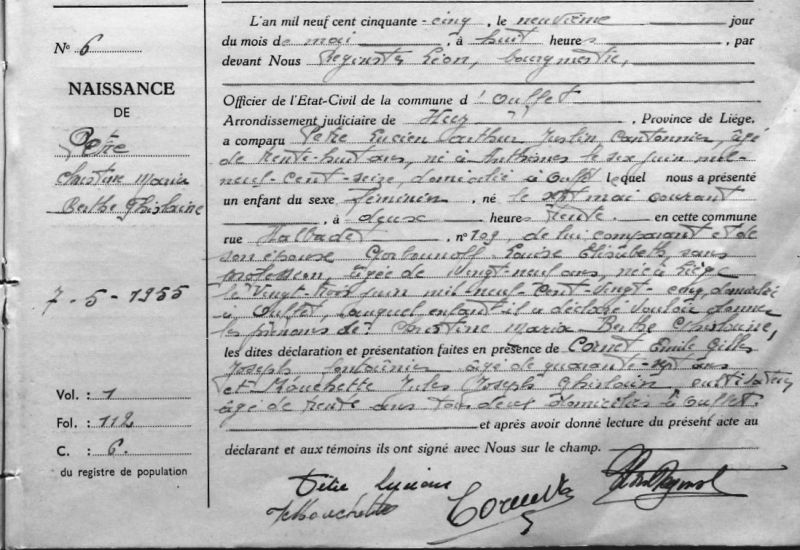 N° 6
NAISSANCE
DE
Petre
Christine Maria
Berthe Ghislaine
7-5-1955
Vol. : 1
Fol. : 112
C. : 6.
du registre de population
L'an mil neuf cent cinquante-cinq, le neuvième jour
du mois de mai, à huit heures, par
devant Nous Léon, bourgmestre,
Officier de l'Etat-Civil de la commune d'Ouffet
Arrondissement judiciaire de Huy, Province de Liége,
a comparu Petre Lucien Arthur Justin Cantonnier, âgé
de trente-huit ans, né à Anthisnes le six juin mil-
neuf-cent-seize, domicilié à Ouffet lequel nous a présenté
un enfant du sexe féminin, né le sept mai courant
, à deux heures trente en cette commune
rue Malbadet, n° 109 de lui comparant et de
son épouse Louise Elisabeth, sans
profession, âgée de vingt-neuf ans, née à Liége
le vingt trois juin mil neuf cent vingt-cinq, domiciliée
à Ouffet, auquel enfant il a déclaré vouloir donner
les prénoms de : Christine Maria Berthe Ghislaine,
les dites déclaration et présentation faites en présence de Cornet Emile Gilles
Joseph fontainier âgé de quarante sept ans
et Mouchette Jules Joseph Ghislain,
âgé de trente ans tous deux domiciliés à Ouffet.
et après avoir donné lecture du présent acte au
déclarant et aux témoins ils ont signé avec Nous sur le champ.
Petre Lucien
J Mouchette
Cornet